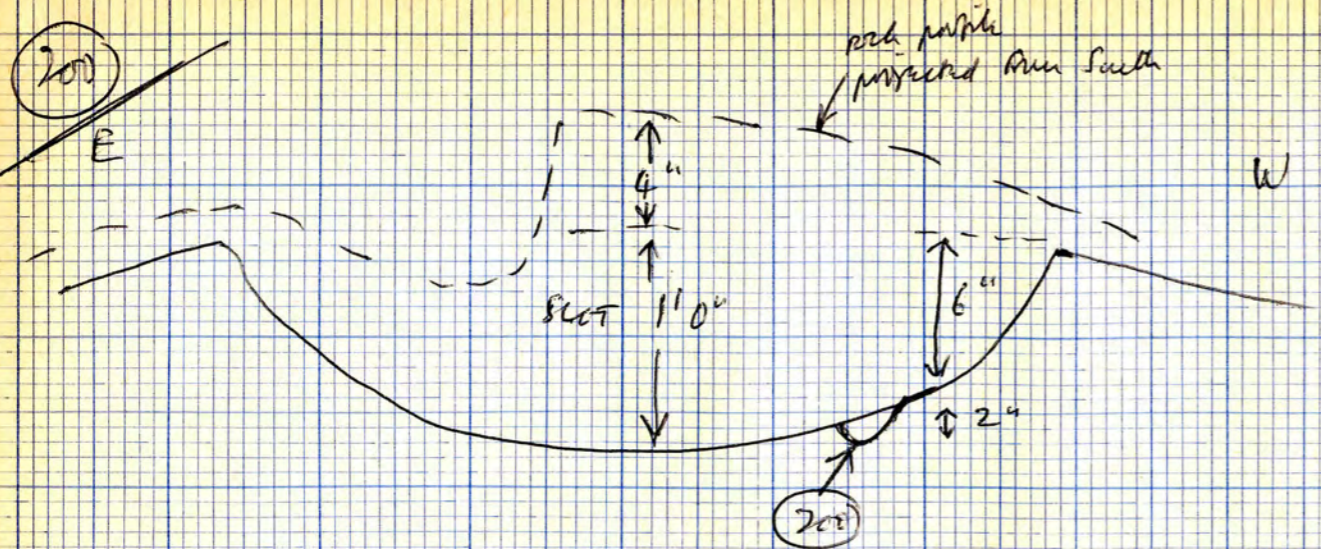 200
rock profile
projected from South
E
W
4"
SLOT 1'0"
6"
2"
200